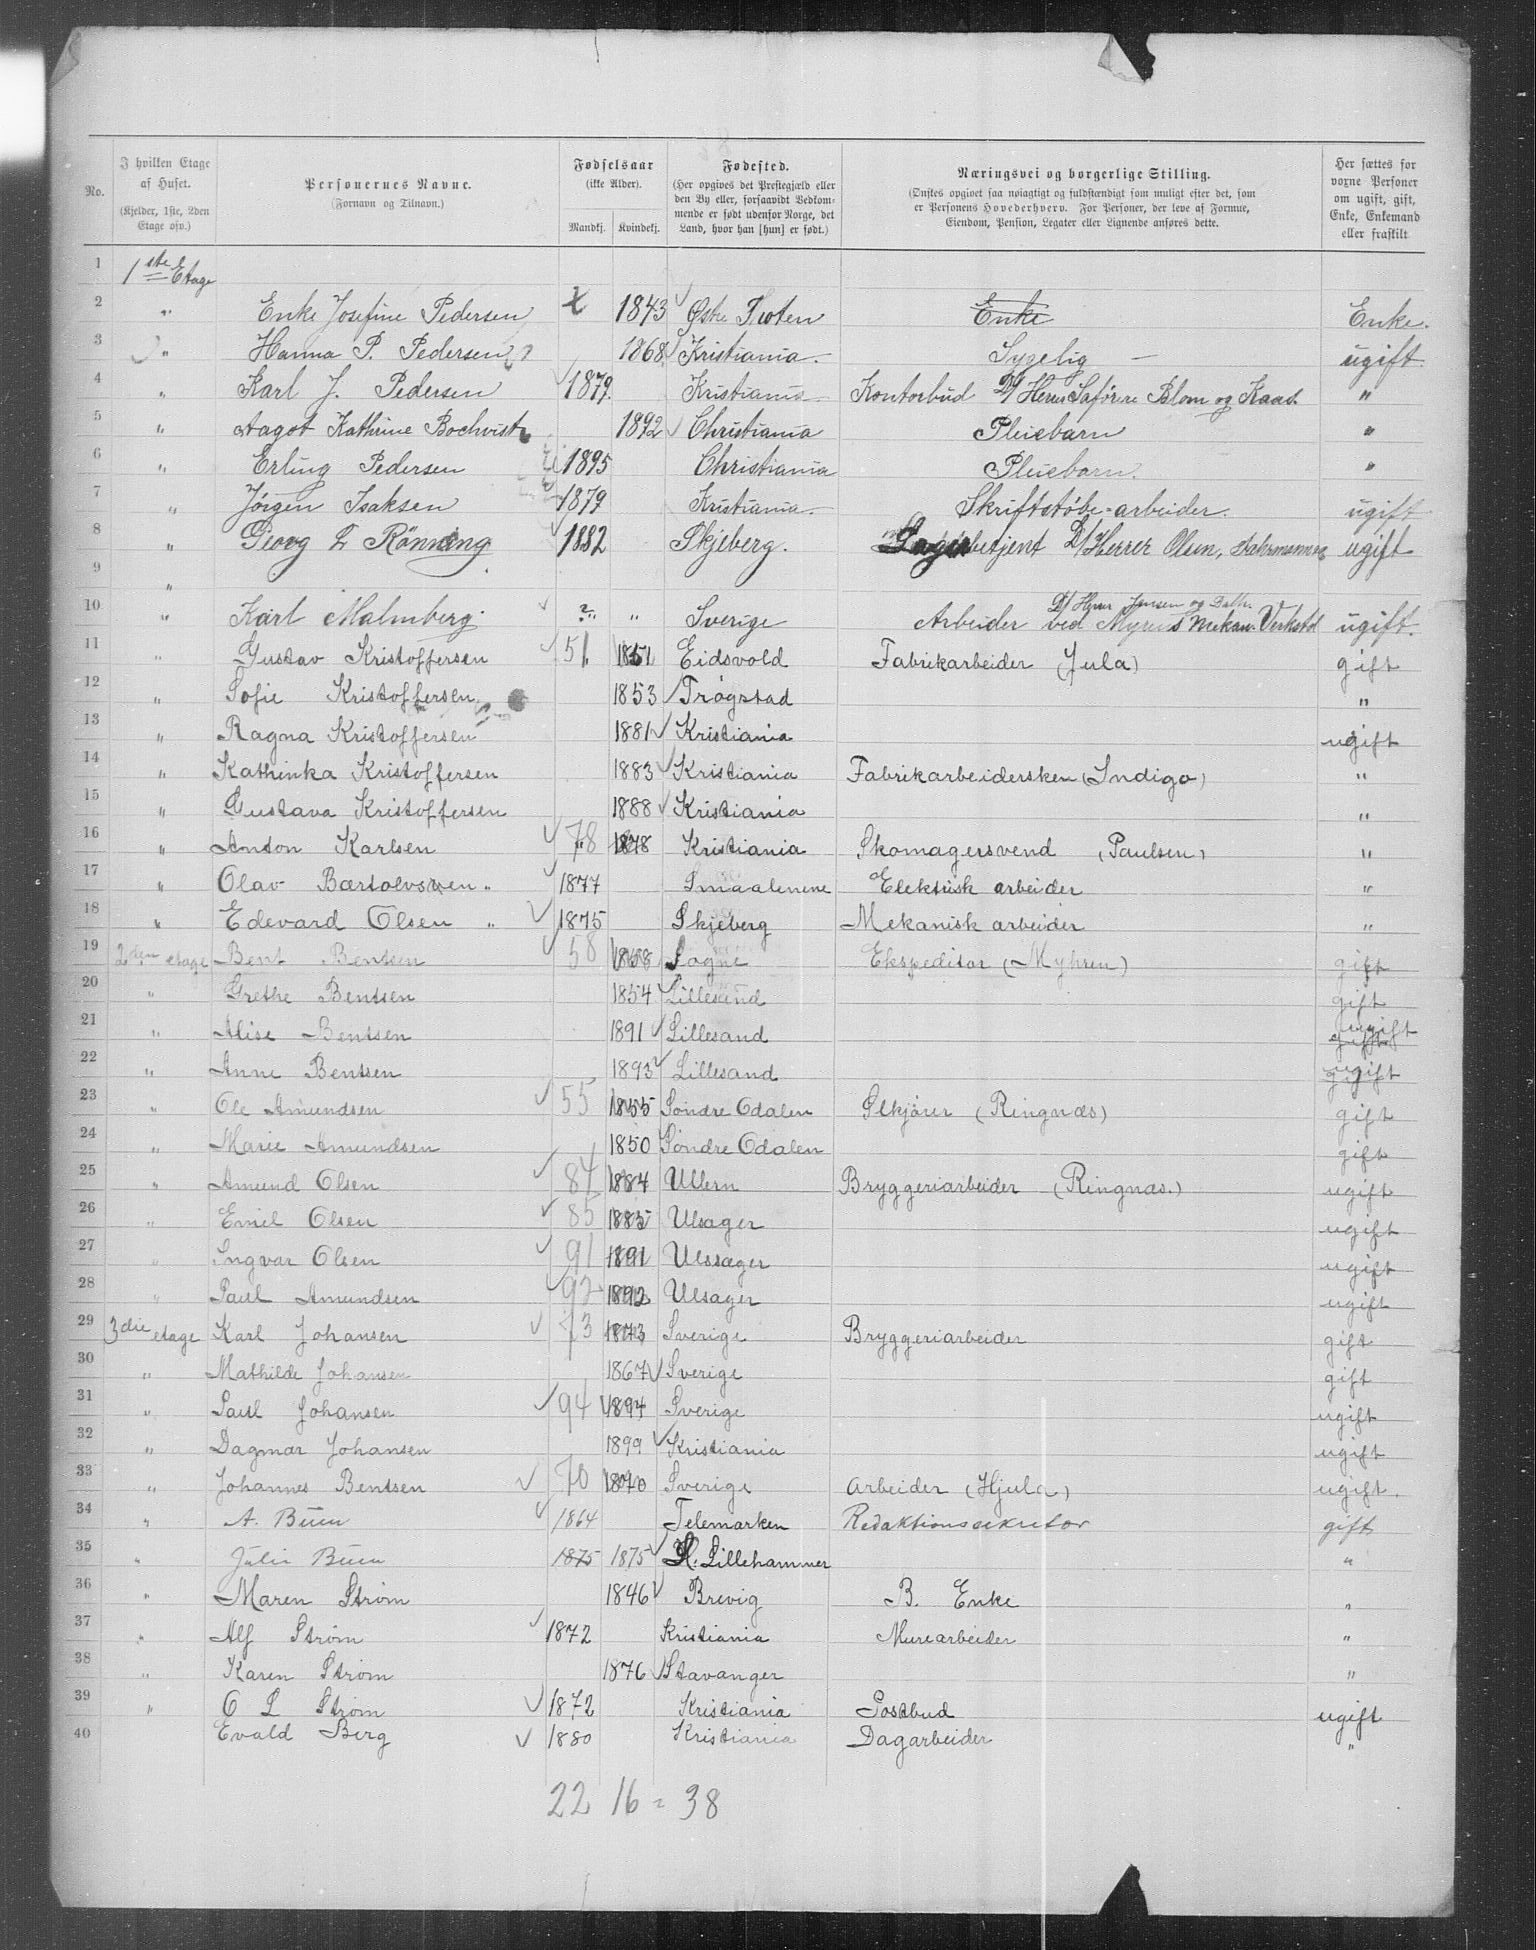 No.
I hvilken Etage af Huset. (Kjelder, 1ste, 2den Etage osv.)
Personernes Navne. (Fornavn og Tilnavn.)
Fødselsaar (ikke Alder). Mandkj. Kvindekj.
Fødested. (Her opgives det Prestegjæld eller den By eller, forsaavidt Vedkommende er født udenfor Norge, det Land, hvor han [hun] er født.)
Næringsvei og borgerlige Stilling. (Ønskes opgivet saa nøiagtigt og fuldstændigt som muligt efter det, som er Personens Hovederhverv. For Personer, der leve af Formue, Eiendom, Pension, Legater eller Lignende anføres dette.)
Her sættes for voxne Personer om ugift, gift, Enke, Enkemand eller fraskilt
1 1ste Etage
2 " Enke Josefine Pedersen 1843 Østre Toten Enke Enke.
3 " Hanna P. Pedersen 1868 Kristiania Sygelig — ugift
4 " Karl J. Pedersen 1879. Kristiania Kontorbud D/ Herrer Saførere Blom og Kaas. "
5 " Aagot Kathrine Bochvist 1892 Christiania Pleiebarn "
6 " Erling Pedersen 1895 Christiania Pleiebarn. "
7 " Jørgen Isaksen 1879 Kristiania Skriftstøbe-arbeider. ugift
8 " Georg L Rönning 1882 Skjeberg. Lagerbetjent D/Herrer Olsen, ugift
9 "
10 " Karl Malmberg. ?" " Sverige Arbeider ved Myrens Mekan. Verksted D/ Herrer Jensen og Dahl. ugift.
11 " Gustav Kristoffersen 51 1851 Eidsvold Fabrikarbeider (Jula) gift
12 " Sofie Kristoffersen 1853 Trøgstad "
13 " Ragna Kristoffersen 1881 Kristiania ugift
14 " Kathinka Kristoffersen 1883 Kristiania Fabrikarbeidersken (Indigo) "
15 " Gustava Kristoffersen 1888 Kristiania "
16 " Anton Karlsen 78 1878 Kristiania Skomagersvend (Paulsen) "
17 " Olav Bærtolvssen " 1877 Smaalenene Elektrisk arbeider "
18 " Edevard Olsen " 1875 Skjeberg Mekanisk arbeider "
19 2den etage Bent Bentsen 58 1858 Søgne Ekspeditør (Myhren) gift
20 " Grethe Bentsen 1854 Lillesand gift
21 " Alise Bentsen 1891 Lillesand gift ugift
22 " Anne Bentsen 1893 Lillesand gift ugift
23 " Ole Amundsen 55 1855 Søndre Odalen Ølkjører (Ringnæs) gift
24 " Marie Amundsen 1850 Søndre Odalen gift
25 " Amund Olsen 84 1884 Ullern Bryggeriarbeider (Ringnæs.) ugift
26 " Emil Olsen 85 1885 Ulsager ugift
27 " Ingvar Olsen 91 1891 Ulssager ugift
28 " Paul Amundsen 92 1892 Ulsager ugift
29 3die etage Karl Johansen 73 1873 Sverige Bryggeriarbeider gift
30 " Mathilde Johansen 1867 Sverige gift
31 " Paul Johansen 94 1894 Sverige ugift
32 " Dagmar Johansen 1899 Kristiania ugift
33 " Johannes Bentsen 70 1870 Sverige arbeider (Hjula) ugift.
34 " A. Buen 1864 Telemarken Redaktionssekretør gift
35 " Julie Buen 1875 1875 Lillehammer "
36 " Maren Strøm 1846 Brevig B. Enke "
37 " Alf Strøm 1872 Kristiania Murearbeider "
38 " Karen Strøm 1876 Stavanger "
39 " O L Strøm 1872 Kristiania Postbud ugift
40 Evald Berg 1880 Kristiania Dagarbeider "
22 16 = 38